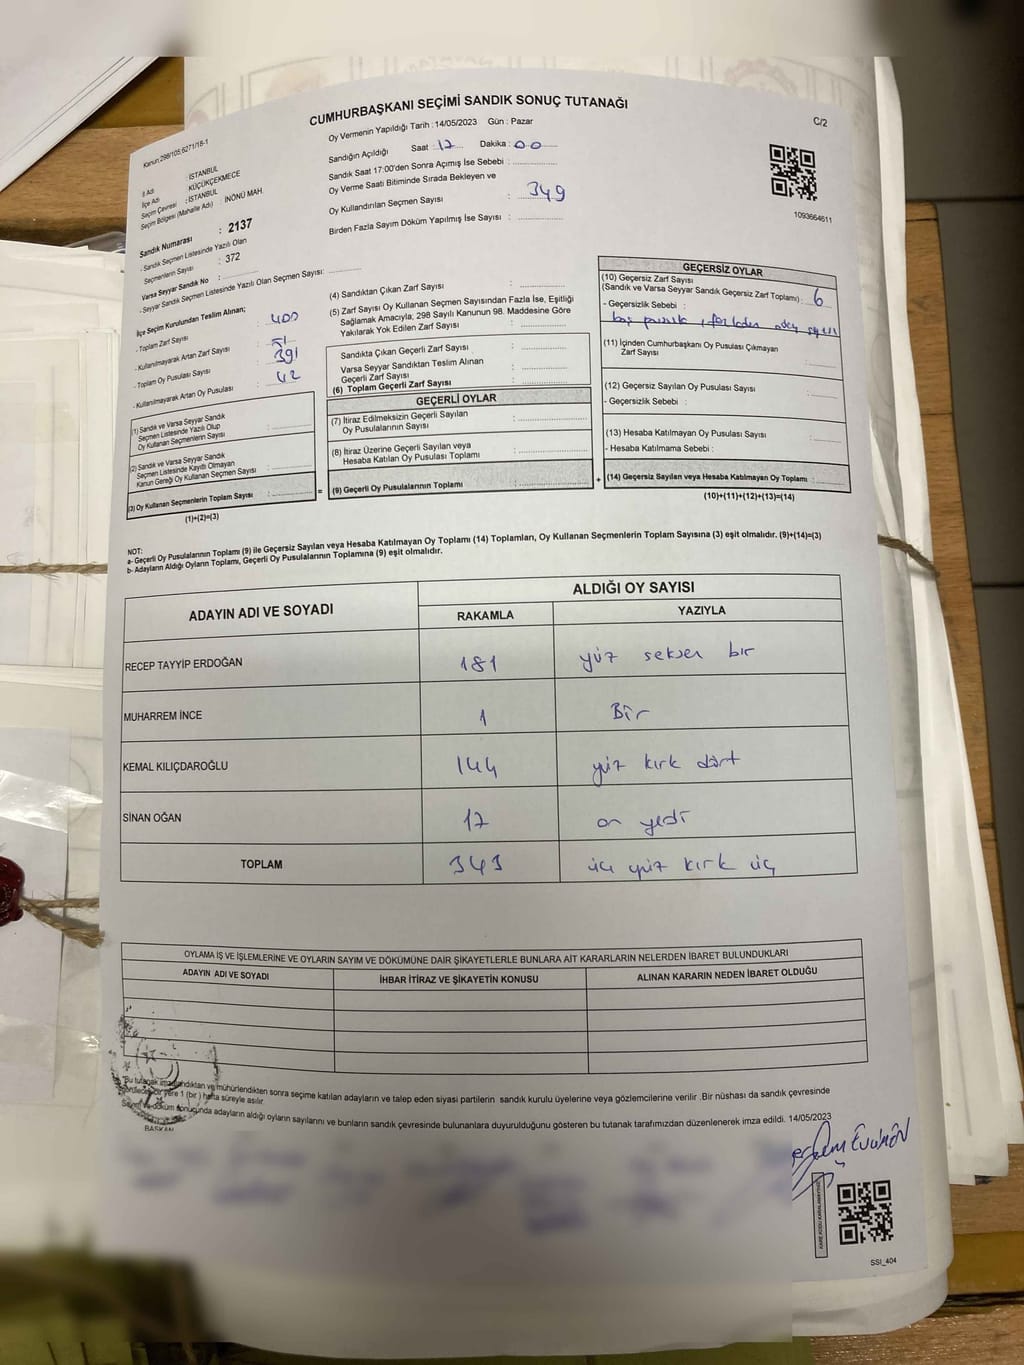 CUMHURBAŞKANI SEÇİMİ SANDIK SONUÇ TUTANAĞI
C/2
Kanun:298/105;6271/16-1
Oy Vermenin Yapıldığı Tarih : 14/05/2023 Gün : Pazar
Sandığın Açıldığı Saat : 17 Dakika : 00
Sandık Saat 17:00'den Sonra Açımış İse Sebebi :
Oy Verme Saati Bitiminde Sırada Bekleyen ve
Oy Kullandırılan Seçmen Sayısı : 349
Birden Fazla Sayım Döküm Yapılmış İse Sayısı :
1093664611
İl Adı : İSTANBUL
İlçe Adı : KÜÇÜKÇEKMECE
Seçim Çevresi : İSTANBUL
Seçim Bölgesi (Mahalle Adı) : İNÖNÜ MAH.
Sandık Numarası : 2137
- Sandık Seçmen Listesinde Yazılı Olan
Seçmenlerin Sayısı : 372
Varsa Seyyar Sandık No :
- Seyyar Sandık Seçmen Listesinde Yazılı Olan Seçmen Sayısı:
İlçe Seçim Kurulundan Teslim Alınan;
- Toplam Zarf Sayısı : 400
- Kullanılmayarak Artan Zarf Sayısı : 51
- Toplam Oy Pusulası Sayısı : 391
- Kullanılmayarak Artan Oy Pusulası : 42
(1) Sandık ve Varsa Seyyar Sandık
Seçmen Listesinde Yazılı Olup
Oy Kullanan Seçmenlerin Sayısı :
(2) Sandık ve Varsa Seyyar Sandık
Seçmen Listesinde Kayıtlı Olmayan
Kanun Gereği Oy Kullanan Seçmen Sayısı :
(3) Oy Kullanan Seçmenlerin Toplam Sayısı :
(1)+(2)=(3)
=
(4) Sandıktan Çıkan Zarf Sayısı :
(5) Zarf Sayısı Oy Kullanan Seçmen Sayısından Fazla İse, Eşitliği
Sağlamak Amacıyla; 298 Sayılı Kanunun 98. Maddesine Göre
Yakılarak Yok Edilen Zarf Sayısı :
Sandıkta Çıkan Geçerli Zarf Sayısı :
Varsa Seyyar Sandıktan Teslim Alınan
Geçerli Zarf Sayısı :
(6) Toplam Geçerli Zarf Sayısı :
GEÇERLİ OYLAR
(7) İtiraz Edilmeksizin Geçerli Sayılan
Oy Pusulasının Sayısı :
(8) İtiraz Üzerine Geçerli Sayılan veya
Hesaba Katılan Oy Pusulası Toplamı :
(9) Geçerli Oy Pusulalarının Toplamı :
+
GEÇERSİZ OYLAR
(10) Geçersiz Zarf Sayısı
(Sandık ve Varsa Seyyar Sandık Geçersiz Zarf Toplamı) : 6
- Geçersizlik Sebebi :
boş pusula
(11) İçinden Cumhurbaşkanı Oy Pusulası Çıkmayan
Zarf Sayısı :
(12) Geçersiz Sayılan Oy Pusulası Sayısı :
- Geçersizlik Sebebi :
(13) Hesaba Katılmayan Oy Pusulası Sayısı :
- Hesaba Katılmama Sebebi :
(14) Geçersiz Sayılan veya Hesaba Katılmayan Oy Toplamı :
(10)+(11)+(12)+(13)=(14)
NOT:
a- Geçerli Oy Pusulalarının Toplamı (9) ile Geçersiz Sayılan veya Hesaba Katılmayan Oy Toplamı (14) Toplamları, Oy Kullanan Seçmenlerin Toplam Sayısına (3) eşit olmalıdır. (9)+(14)=(3)
b- Adayların Aldığı Oyların Toplamı, Geçerli Oy Pusulalarının Toplamına (9) eşit olmalıdır.
ADAYIN ADI VE SOYADI
ALDIĞI OY SAYISI
RAKAMLA YAZIYLA
RECEP TAYYİP ERDOĞAN 181 yüz seksen bir
MUHARREM İNCE 1 Bir
KEMAL KILIÇDAROĞLU 144 yüz kırk dört
SİNAN OĞAN 17 on yedi
TOPLAM 343 üç yüz kırk üç
OYLAMA İŞ VE İŞLEMLERİNE VE OYLARIN SAYIM VE DÖKÜMÜNE DAİR ŞİKAYETLERLE BUNLARA AİT KARARLARIN NELERDEN İBARET BULUNDUKLARI
ADAYIN ADI VE SOYADI İHBAR İTİRAZ VE ŞİKAYETİN KONUSU ALINAN KARARIN NEDEN İBARET OLDUĞU
Bu tutanak imzalandıktan ve mühürlendikten sonra seçime katılan adayların ve talep eden siyasi partilerin sandık kurulu üyelerine veya gözlemcilerine verilir .Bir nüshası da sandık çevresinde
bir yere 1 (bir ) hafta süreyle asılır.
Sayım ve döküm sonucunda adayların aldığı oyların sayılarını ve bunların sandık çevresinde bulunanlara duyurulduğunu gösteren bu tutanak tarafımızdan düzenlenerek imza edildi. 14/05/2023
BAŞKAN
SSI_404